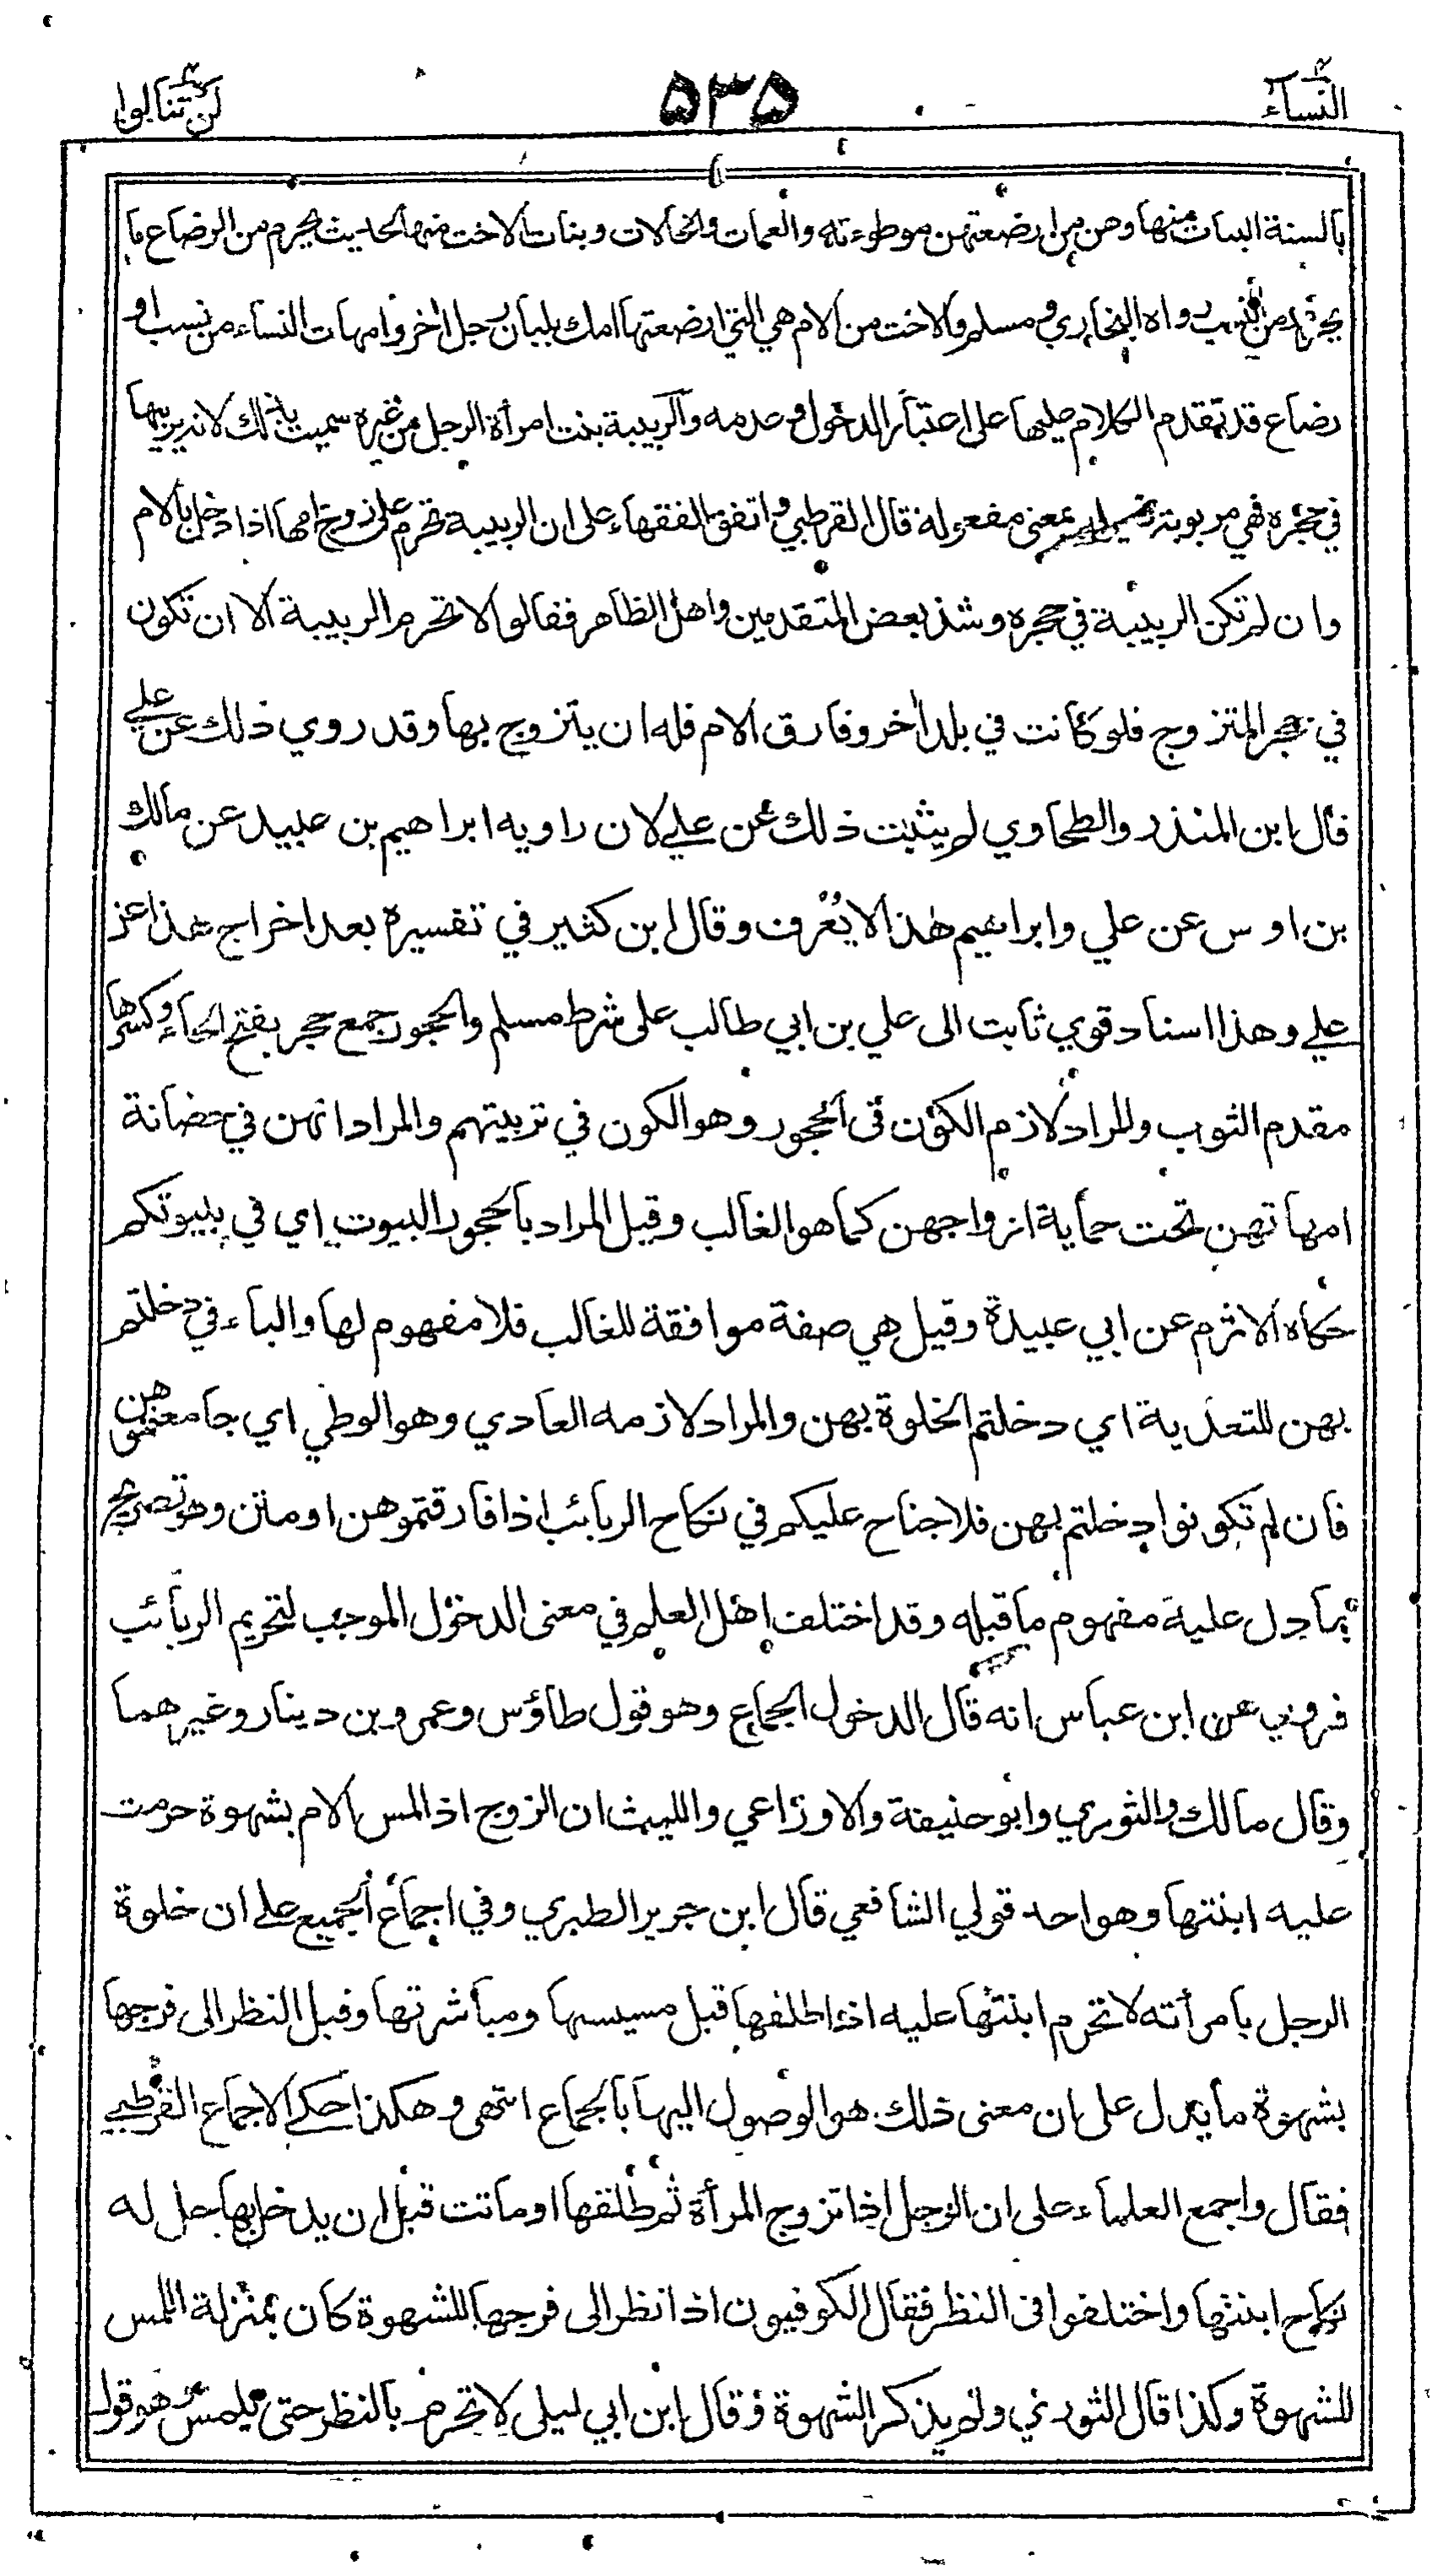 النساء ٤
٥٣٥
لن تنالوا ٤
بالسنة البنات منها وهن من ارضعتهن موطوءته والعمات والخالات وبنات الاخت منها لحديث يحرم من الرضاع ما
يحرم من النسب رواه البخاري ومسلم والاخت من الام هي التي ارضعتها امك بلبان رجل اخر وامهات النساء من نسب او
رضاع قد تقدم الكلام عليها على اعتبار الدخول وعدمه والربيبة بنت امرأة الرجل من غيره سميت بذلك لانه يربيها
في حجره فهي مربوبة بمعنى مفعولة قال القرطبي واتفق الفقهاء على ان الربيبة تحرم على زوج امها اذا دخل بالام
وان لم تكن الربيبة في حجره وشذ بعض المتقدمين واهل الظاهر فقالوا لا تحرم الربيبة الا ان تكون
في حجر المتزوج فلو كانت في بلد أخر وفارق الام فله ان يتزوج بها وقد روي ذلك عن علي
قال ابن المنذر والطحاوي لم يثبت ذلك عن علي لان راويه ابراهيم بن عبيد عن مالك
بن اوس عن علي وابراهيم هذا لا يُعْرف وقال ابن كثير في تفسيره بعد اخراج هذا عن
علي وهذا اسناد قوي ثابت الى علي بن ابي طالب على شرط مسلم والحجور جمع حجر بفتح الحاء وكسرها
مقدم الثوب والمراد لازم الكون في الحجور وهو الكون في تربيتهم والمراد انهن في حضانة
امهاتهن تحت حماية ازواجهن كما هو الغالب وقيل المراد بالحجور البيوت اي في بيوتكم
حكاه الاثرم عن ابي عبيدة وقيل هي صفة موافقة للغالب فلا مفهوم لها والباء في دخلتم
بهن للتعدية اي دخلتم الخلوة بهن والمراد لازمه العادي وهو الوطي اي جامعتموهن
فان لم تكونوا دخلتم بهن فلا جناح عليكم في نكاح الربائب اذا فارقتموهن او متن وهو تصريح
بما دل عليه مفهوم ما قبله وقد اختلف اهل العلم في معنى الدخول الموجب لتحريم الربائب
فروي عن ابن عباس انه قال الدخول الجماع وهو قول طاؤس وعمرو بن دينار وغيرهما
وقال مالك والثوري وابو حنيفة والاوزاعي والليث ان الزوج اذا لمس الام بشهوة حرمت
عليه ابنتها وهو احد قولي الشافعي قال ابن جرير الطبري وفي اجماع الجميع على ان خلوة
الرجل بامرأته لا تحرم ابنتها عليه اذا طلقها قبل مسيسها ومباشرتها وقبل النظر الى فرجها
بشهوة ما يدل على ان معنى ذلك هو الوصول اليها بالجماع انتهى وهكذا حكى الاجماع القرطبي
فقال واجمع العلماء على ان الرجل اذا تزوج المرأة ثم طلقها او ماتت قبل ان يدخل بها حل له
نكاح ابنتها واختلفوا في النظر فقال الكوفيون اذا نظر الى فرجها للشهوة كان بمنزلة اللمس
للشهوة وكذا قال الثوري ولم يذكر الشهوة وقال ابن ابي ليلى لا تحرم بالنظر حتى يلمس وهو قول